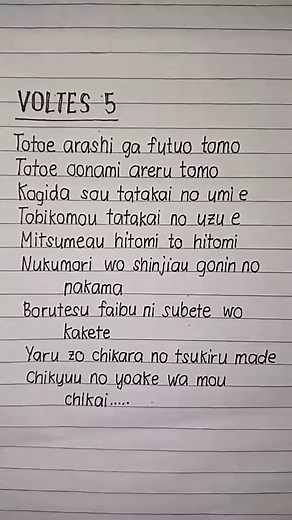 VOLTES 5
Totoe arashi ga futuo tomo
Totoe oonami areru tomo
Kogida sou tatakai no umi e
Tobikomou tatakai no uzu e
Mitsumeau hitomi to hitomi
Nukumori wo shinjiau gonin no
nakama
Borutesu faibu ni subete wo
kakete
Yaru zo chikara no tsukiru made
Chikyuu no yoake wa mou
chikai.....